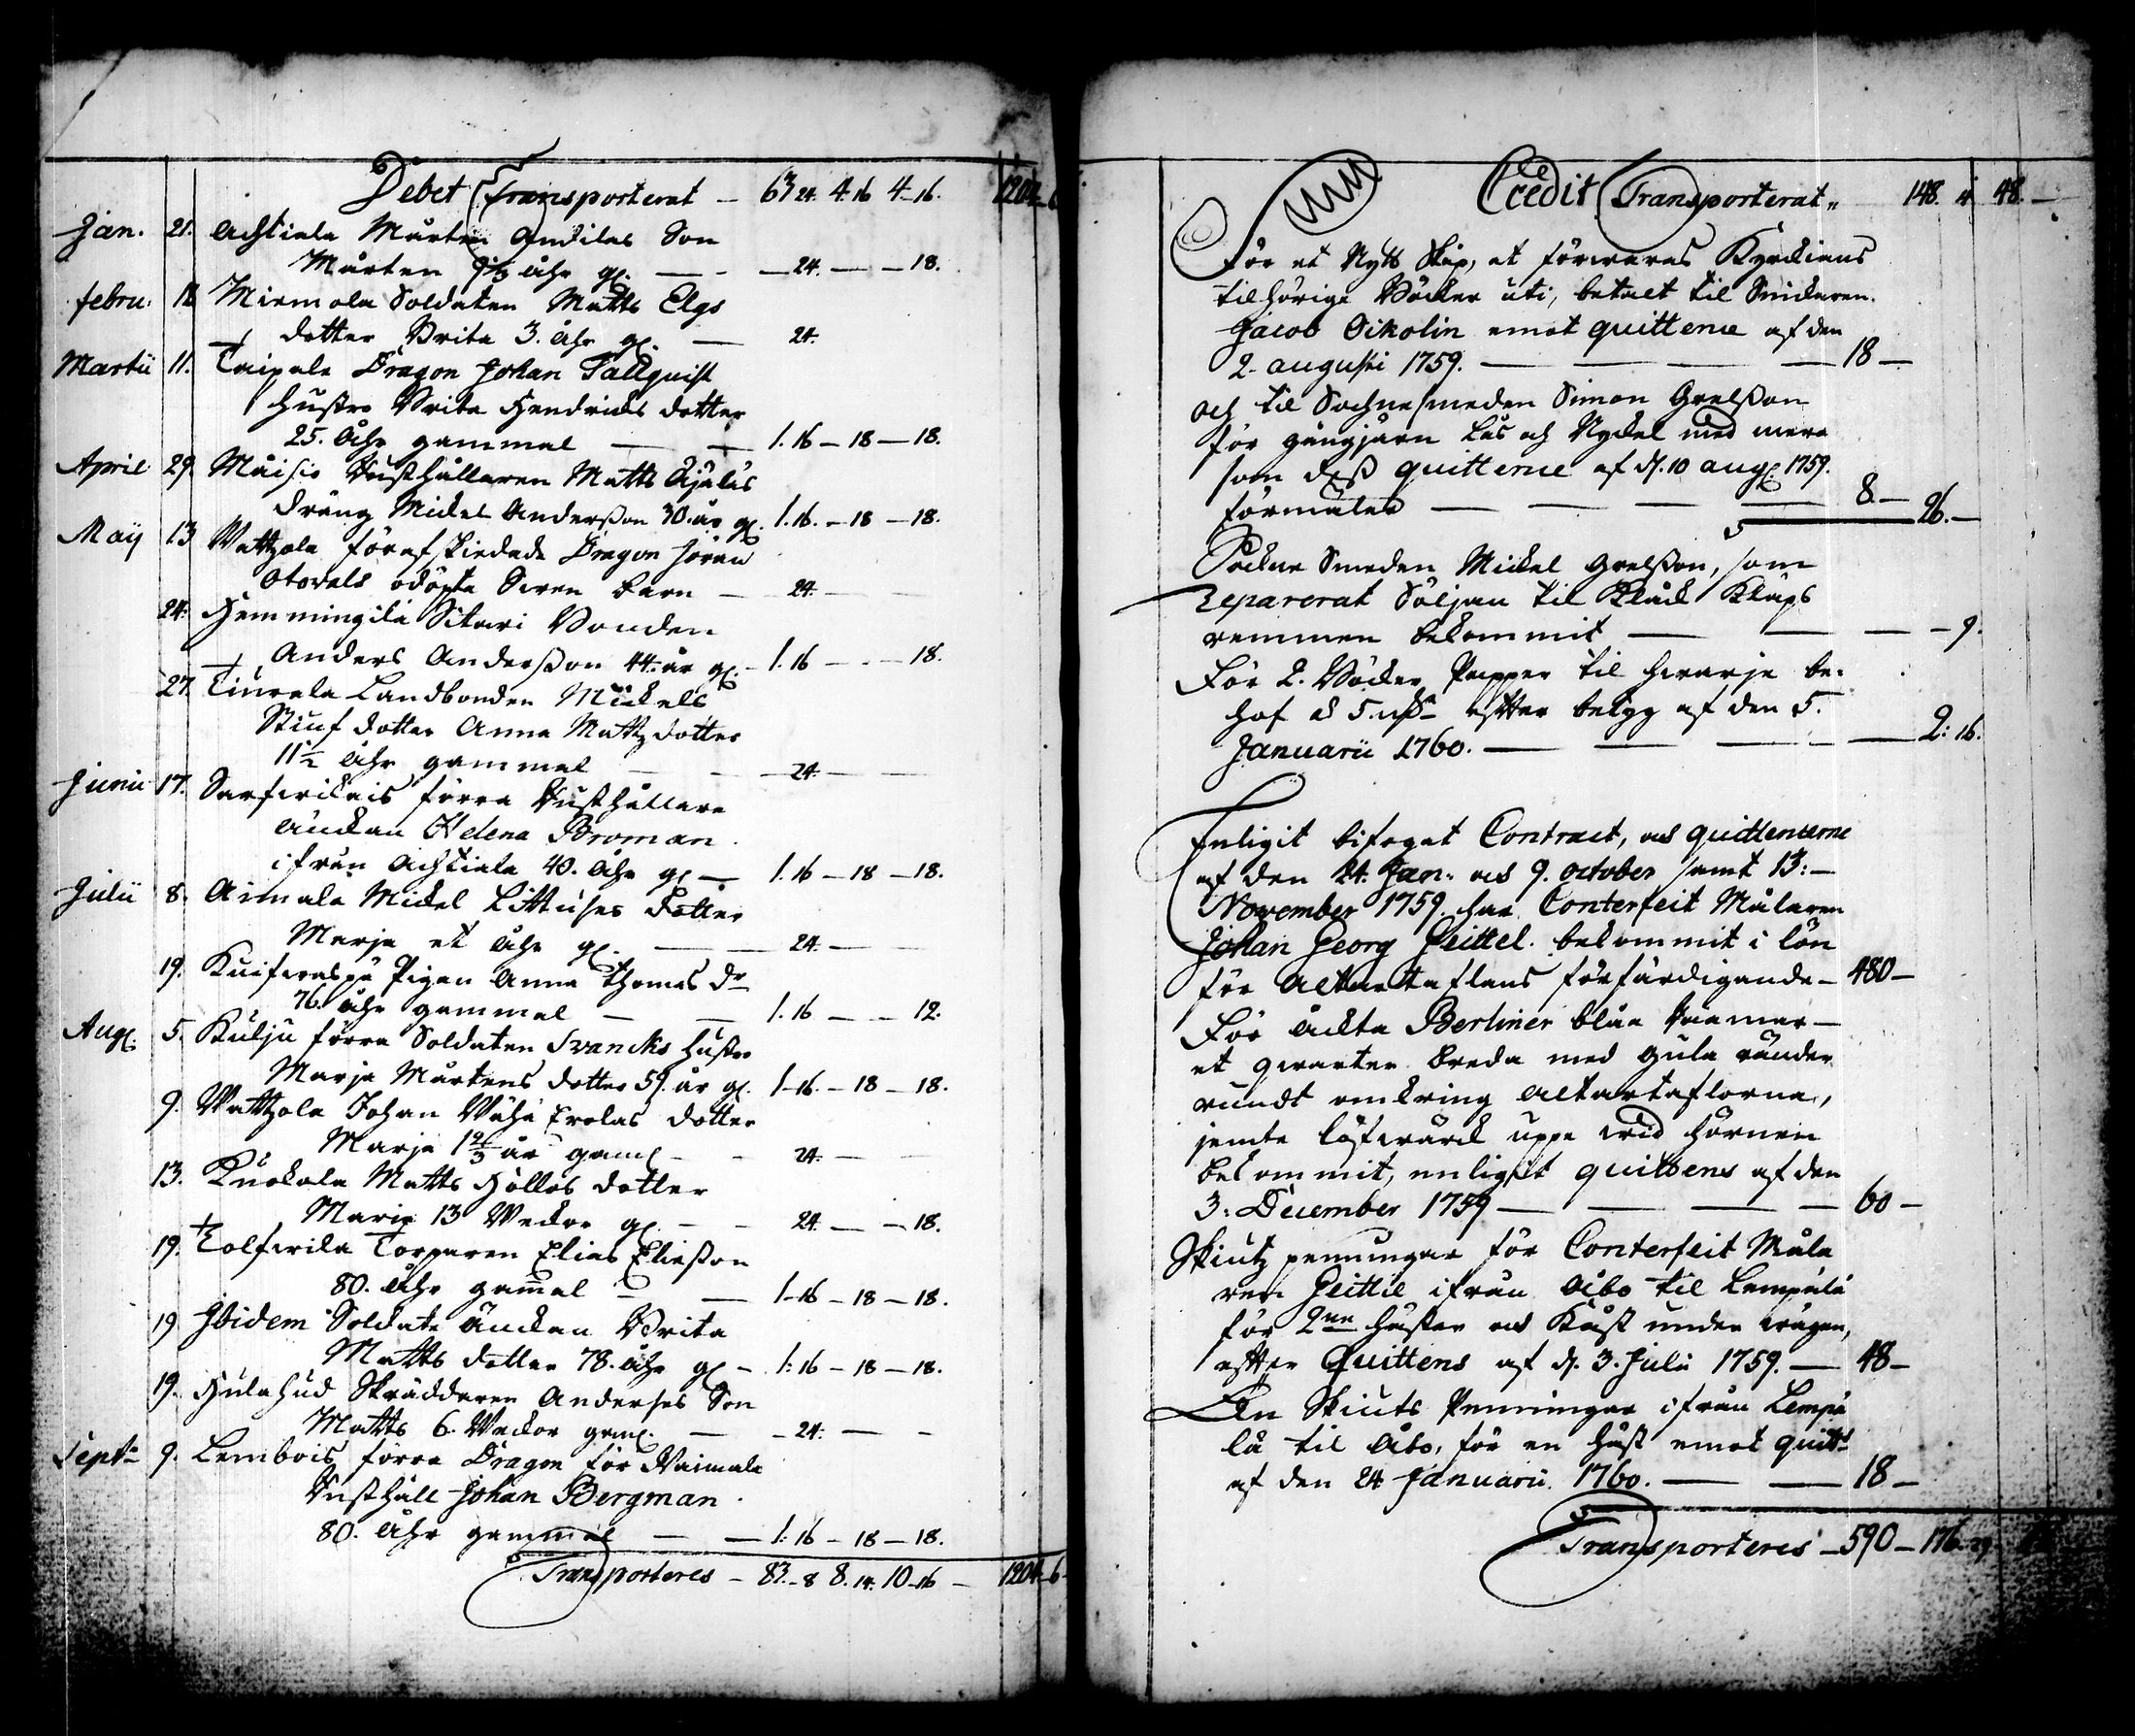 Debet Transporterat – 63 24. 4.16 4-16. 1204-6
Jan. 21. Achtiala Mårten Andilas Son
Mårten 9½ åhr gl. — – 24. — – 18.
febru. 18 Miemola Soldaten Matts Elgs
dotter Brita 3. åhr gl. — 24.
Martii 11. Taipale Dragon Johan Tallquist
hustro Brita Hendrichs dotter
25. åhr gammal — — 1.16 – 18 – 18.
April 29. Måisio Rusthållaren Matts Äijäläs
dräng Michel Anderßon 30. år gl. 1.16. – 18 – 18.
Maij 13 Wattzola förafskiedade Dragon Jöran
odöpta Swen barn — 24. —
24. Hemmingilä Sikari Bonden
Anders Anderßon 44. år gl. – 1.16 – – – 18.
27. Tiurala Landbonden Mickels
Stiuf dotter Anna Mattz dotter
11½ åhr gammal — – 24. —
Junii 17. Sarfwikais förra Rusthållare
änckan Helena Broman
ifrån Achtiala 40. åhr gl — 1.16 – 18 – 18.
Julii 8. Aimala Michel Littuises dotter
Marja et åhr gl. — — 24. —
19. Kuifwaspä Pigan Anna Thomas dr
76. åhr gammal — — 1.16 – – 12.
Augl. 5. Kulju förra Soldaten Svancks hustro
Marja Mårtens dotter 59. år gl. 1-16. – 18 – 18.
9. Wattzola Johan Wähä Erolas dotter
Marja 1⅔ år gaml – – 24. —
13. Kuokala Matts Höllös dotter
Maria 13 Weckor gl. – – 24. — – 18.
19. Tolfwila Torparen Elias Eliæßon
80. åhr gamal – — 1-16 – 18 – 18.
19 Ibidem Soldate änckan Brita
Matts dotter 78. åhr gl – 1:16 – 18 – 18.
19. Hulahud Skräddaren Anderses Son
Matts 6. Weckor gaml. — – 24: — –
Septr 9. Lembois förra Dragon för Waimala
Rusthåll Johan Bergman
80. åhr gammal — — 1:16 – 18 – 18.
Transporteres – 83.-8 8.14. 10-16 – 1204-6
Credit Transporterat 148. 4 48. —
För et Nytt Skåp, at förwaras Kyrckians
tilhörige Böcker uti, betalt til Snickaren
Jacob Oikolin emot quittence af den
2. augusti 1759. — — — — 18 —
och til Sochnesmeden Simon Grelßon
för gångjärn Lås och Nyckel med mera
som deß quittence af d. 10 augl. 1759.
förmäler — — — — 8 — 26. —
Sockne Smeden Michel Grelßon, som
reparerat Söljan til Klåck Kläps
remmen bekommit — — — – 9.
För 2. Böcker Papper til hwarje be:
hof a 5. efter belägg af den 5.
Januarii 1760. — — — — 2: 16.
Enligit bifogat Contract, och quittencerne
af den 24. Jan. och 9. october samt 13: —
November 1759. har Conterfeit Målaren
Johan Georg Geittel bekommit i lön
för Altartaflans förfärdigande – 480 —
För äckta Berliner blåa ramar —
et qwarter breda med gula ränder
rundt omkring altartaflorna,
jemte löfwärck uppe wid hörnen
bekommit, enligit quittens af den
3: December 1759 — — — — 60 —
Skiutz penningar för Conterfeit Måla
ren Geittil ifrån Åbo til Lempälä
för 2ne hästar och Kost under wägen,
efter Quittens af d. 3. Julii 1759. — 48 —
En Skiuts Penningar ifrån Lempä
lä til Åbo, för en häst emot quitts
af den 24 Januarii 1760. — — 18 —
Transporteres – 590 – 176. 29